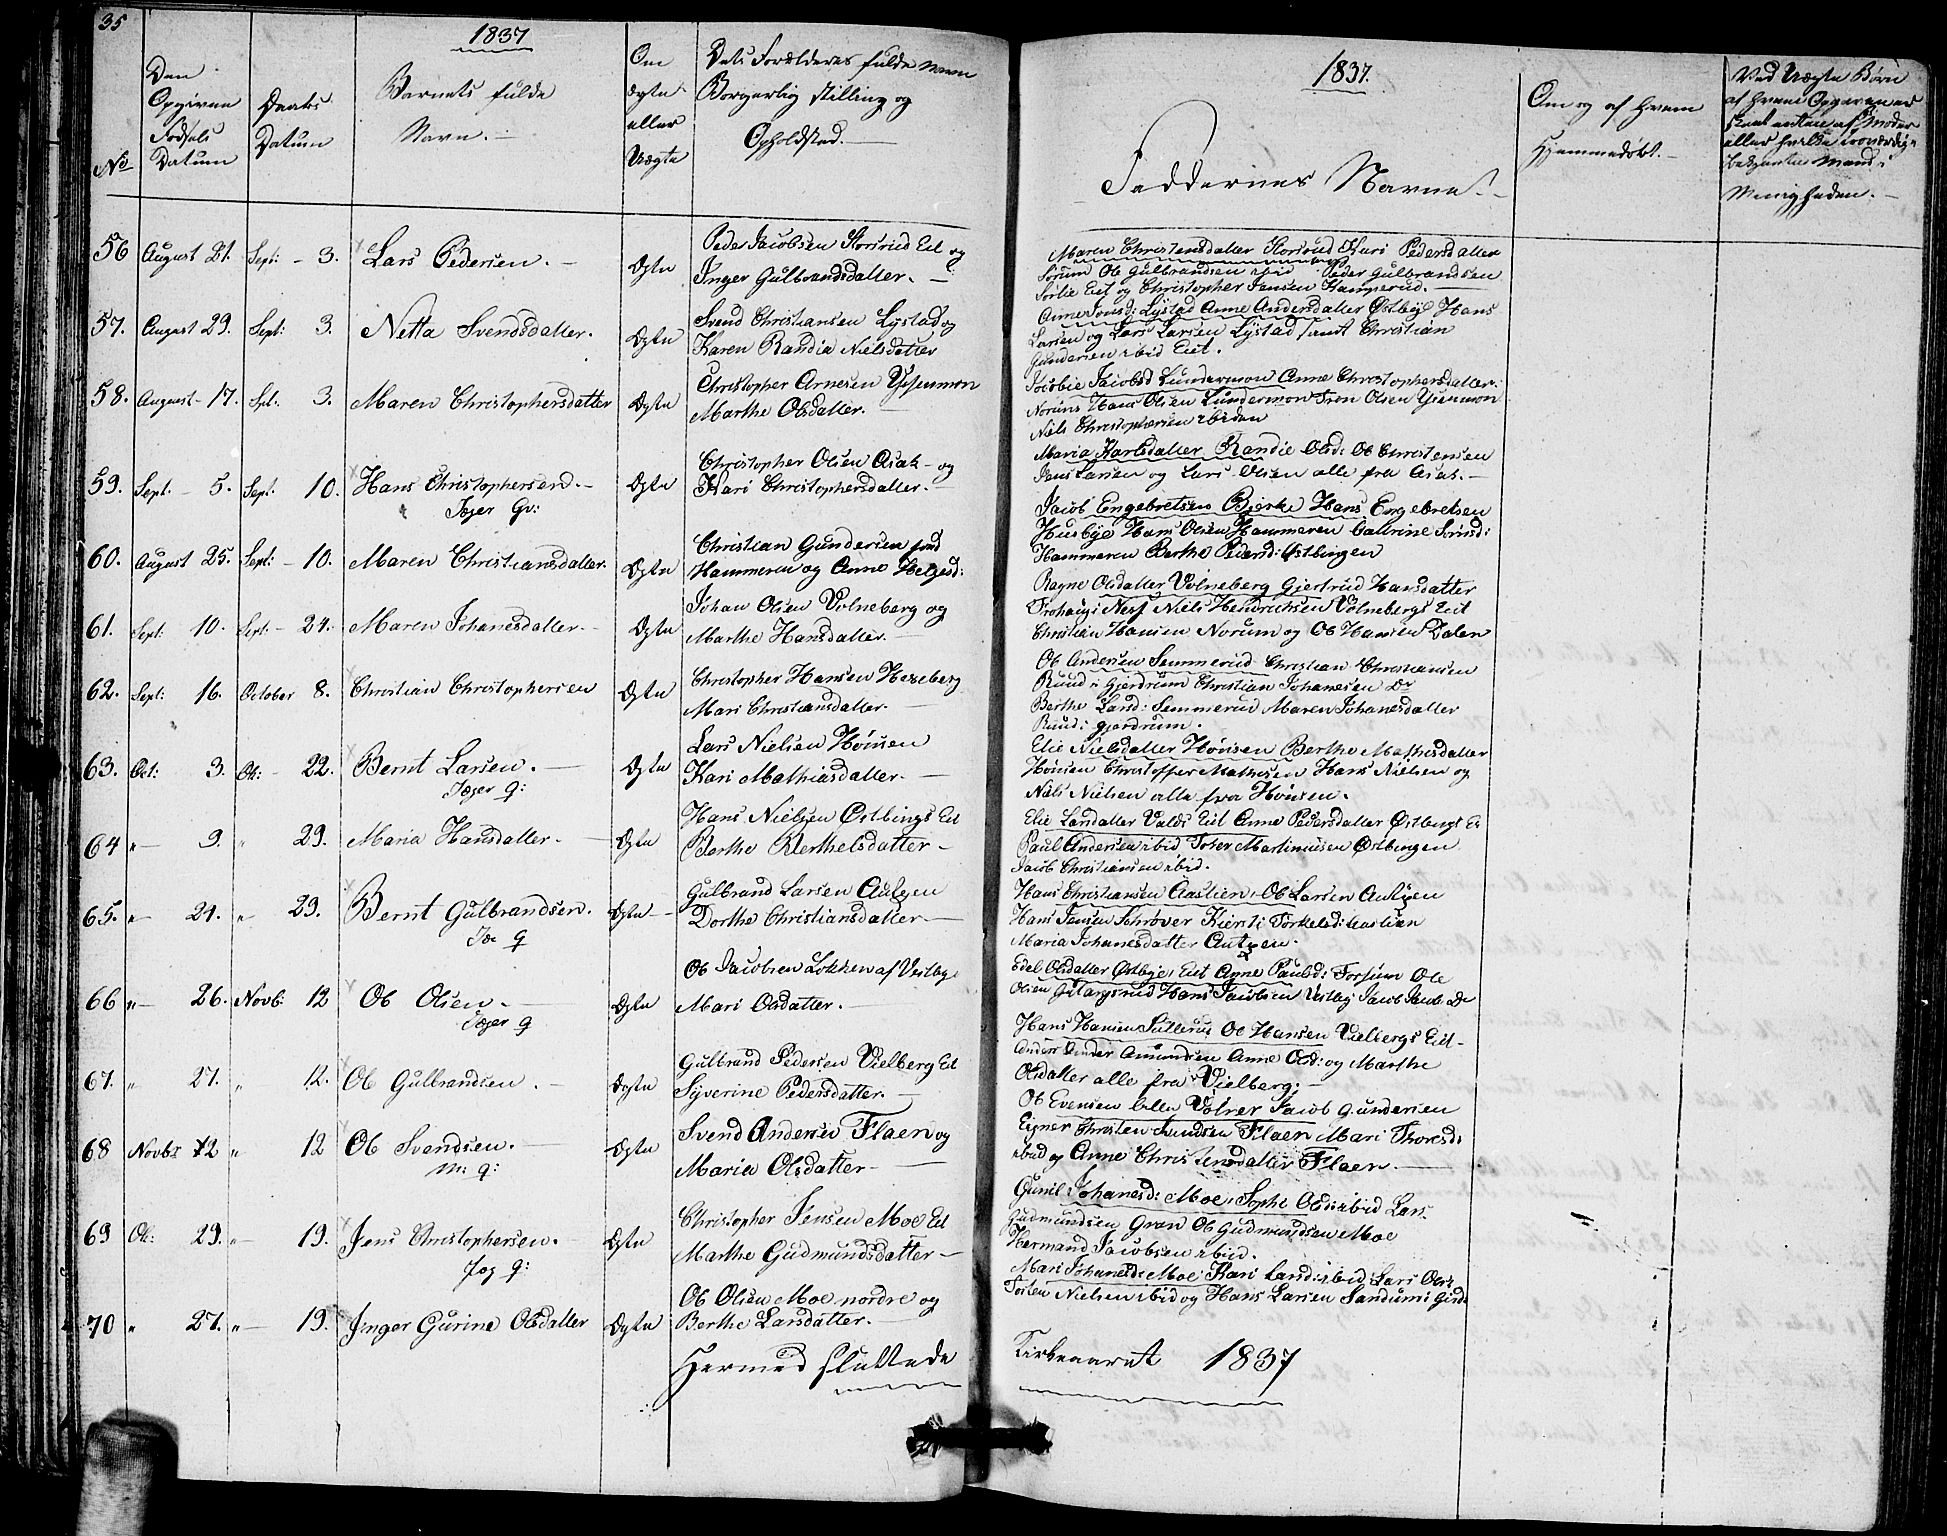 35
1837
No
Den
Opgivne
Fødsels
Datum
Daabs
Datum
Barnets fulde
Navn.
Om
ægte
eller
Uægte
Dets Forældres fulde Navn
Borgerlig stilling og
Opholdsted.
56 August 21. Sept: 3. Lars Pedersen. Ægte
Peder Jacobsen Storsrud Eit og
Inger Gulbrandsdatter.
57. August 29. Sept: 3. Netta Svendsdatter. Ægte
Svend Christiansen Lystad og
Karen Randia Nielsdatter
58. August 17. Spt. 3. Maren Christophersdatter Ægte
Christopher Arnesen
Marthe Olsdatter.
59. Sept. 5. Sept. 10. Hans Christophersen. Ægte
Jæger Gv:
Christopher Olsen Asak og
Kari Christophersdatter.
60. August 25. Sept: 10. Maren Christiansdatter. Ægte
Christian Gundersen
Hammeren og Anne Helgesd:
61. Sept: 10. Sept: 24. Maren Johanesdatter. Ægte
Johan Olsen Volneberg og
Marthe Hansdatter.
62. Sept: 16. October 8. Christian Christophersen Ægte
Christopher Hansen Hexeberg
Mari Christiansdatter.
63. Oct: 3. Ok: 22. Bernt Larsen. Ægte
Jæger g:
Lars Nielsen Hönsen
Kari Mathiasdatter.
64 " 9. " 29. Maria Hansdatter. Ægte
Hans Nielsen Østbings Eit
Berthe Berthelsdatter
65. " 21. " 29. Bernt Gulbrandsen. Ægte
Jæ g
Gulbrand Larsen Autzen
Dorthe Christiansdatter
66 " 26. Novb: 12 Ole Olsen. Ægte
Jæger g
Ole Jacobsen Lokken af Vestbye
Mari Olsdatter.
67. " 27. " 12. Ole Gulbrandsen. Ægte
Gulbrand Pedersen Vielberg Eit
Syverine Pedersdatter.
68 Novbr 12 " 12 Ole Svendsen. Ægte
m: g:
Svend Andersen Flaen og
Maria Olsdatter
69 Ok: 29. " 19. Jens Christophersen. Ægte
Jæg g:
Christopher Jensen Moe Eit
Marthe Gudmundsdatter
70 " 27. " 19. Inger Gurine Olsdatter Ægte
Ole Olsen Moe nordre og
Berthe Larsdatter.
Hermed sluttede
1837.
Faddernes Navne.
Om og af hvem
Hjemmedøbt.
Ved Uægte Børn
af hvem Opgivenes
skeet enten af Moder
eller hvilke troværdig
bekjente Mænd i
Menigheden.
Maren Christensdatter Storsrud Kari Pedersdatter
Sorum Ole Gulbrandsen ibid Peder Gulbrandsen
Sorlie Eit og Christopher Jensen Hamperud.
Anne Jonsd: Lystad Anne Andersdatter Østbye Hans
Larsen og Lars Larsen Lystad samt Christian
Gundersen ibid Eit.
Jacobie Jacobsd Lundermon Anne Christophersdatter.
Norums Hans Olsen Lundermon Iron Olsen
Niels Christophersen ibiden
Maria Karlsdatter Randie Olsd: Ole Christensen
Jens Larsen og Lars Olsen alle fra Asak.
Jacob Engebretsen Bjerke Hans Engebretsen
Husbye Hans Olsen Hammeren Cathrine
Hammeren Berthe Pedersd: Østbingen
Ragne Olsdatter Volneberg Gjertrud Hansdatter
Niels Hendrichsen Volnebergs Eit
Christian Hansen Norum og Ole Hansen Dalen
Ole Andersen Semmerud Christian Christiansen
Ruud i Gjerdrum Christian Johanesen Do
Berthe Larsd: Semmerud Maren Johanesdatter
Ruud i gjerdrum.
Elie Nielsdatter Hönsen Berthe Mathisdatter
Hönsen Christoffer Mathesen Hans Nielsen og
Niels Nielsen alle fra Hönsen.
Elie Larsdatter Valds Eit Anne Pedersdatter Østbergs Ei
Paul Andersen ibid Martinusen Østbingen
Jacob Christiansen ibid.
Hans Christiansen Aastien, Ole Larsen Autzen
Hans Jensen Schrøver Kiersti Torkelsd: Aastien
Maria Johanesdatter Autzen.
Edel Olsdatter Østbye, Eit Anne Paulsd: Forsum Ole
Olsen Hans Jacobsen Vestby Jacob Do
Hans Hansen Sullerud Ole Hansen Vielbergs Eit
Amundsen Anne Olsd: og Marthe
Olsdatter alle fra Vielberg.
Ole Evensen lille Völner Jacob Gundersen
Eigner Christen Knudsen Flaen Mari Thoresd:
ibid og Anne Christensdatter Flaen.
Gunil Johanesd: Moe, Sophi Olsd: ibid Lars
Gudmundsen Gran Ole Gudmundsen Moe
Hermand Jacobsen ibid.
Mari Johanesd: Moe Kari Larsd: ibid Lars
Torsten Nielsen ibid og Hans Larsen Sandum i Gjrd:
Kirkeaaret 1837